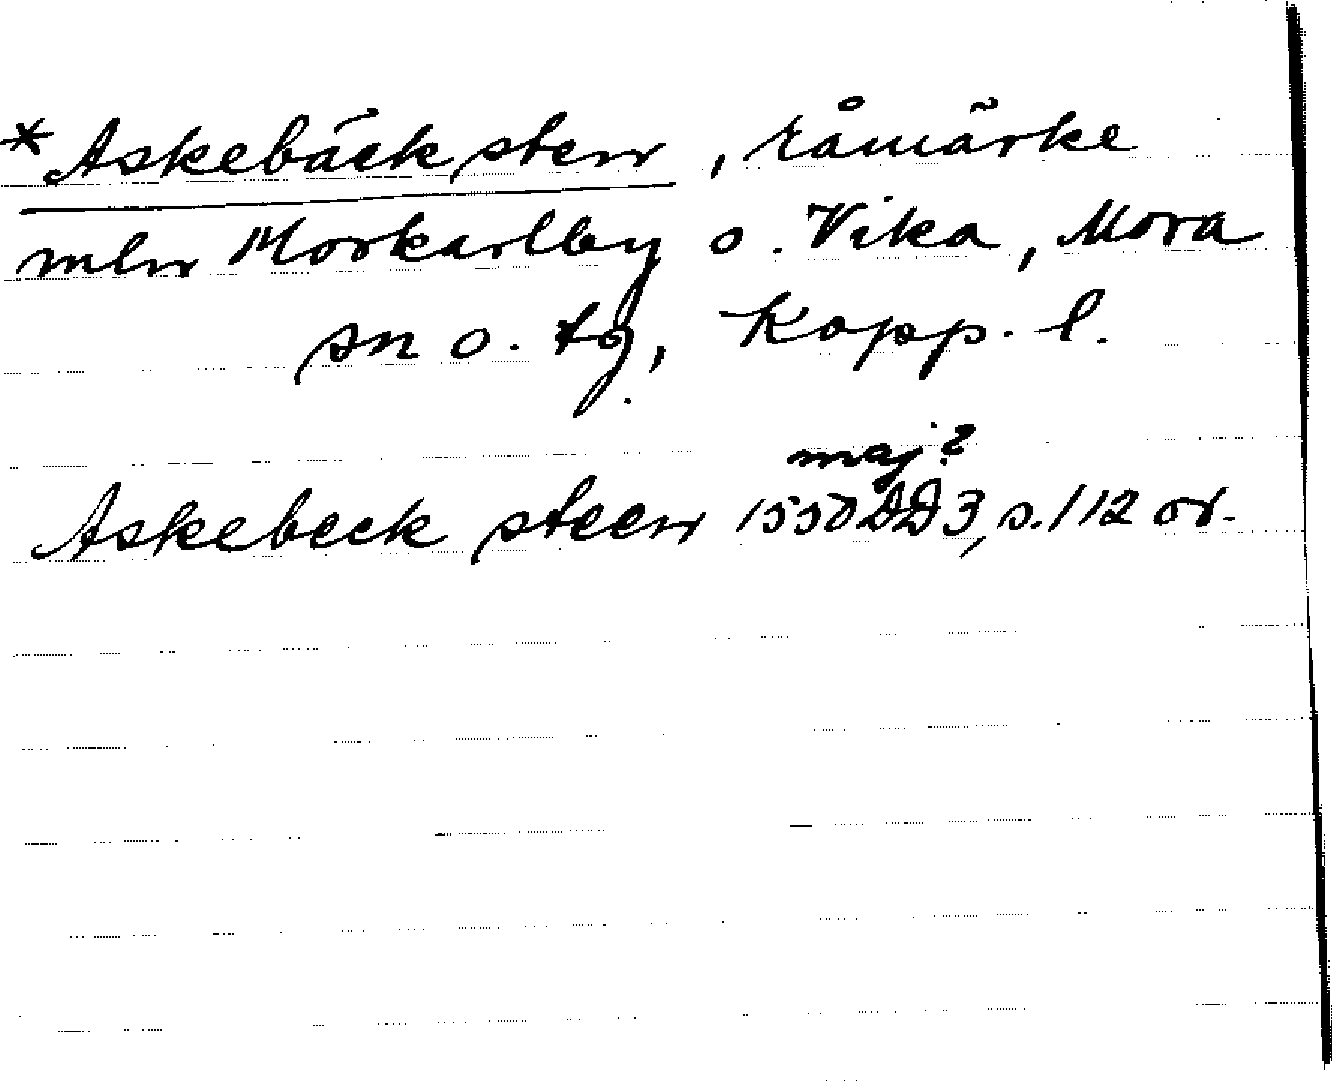 *Askebäcksten, råmärke
mln Morkarlby o. Vika, Mora
sn o. tg, Kopp. l.
maj?
Askebeck steen 1550 DD 3, s. 112 or.